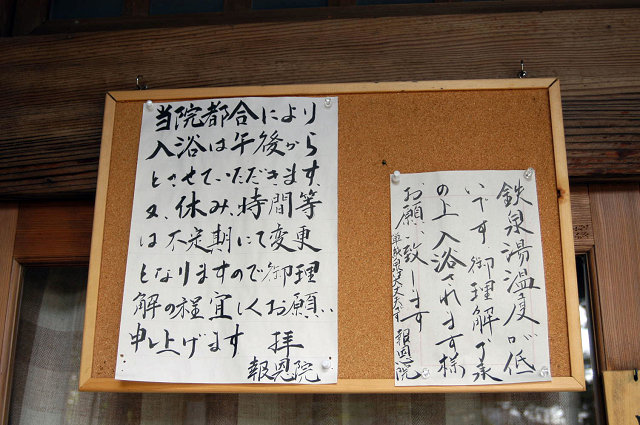 当院都合により
入浴は午後から
とさせていただきます、
又、休み、時間等
は不定期にて変更
となりますので御理
解の程宜しくお願い
申し上げます 拝
報恩院
鉄泉湯温度が低
いです御理解了承
の上入浴されます様
お願い致します
報恩院